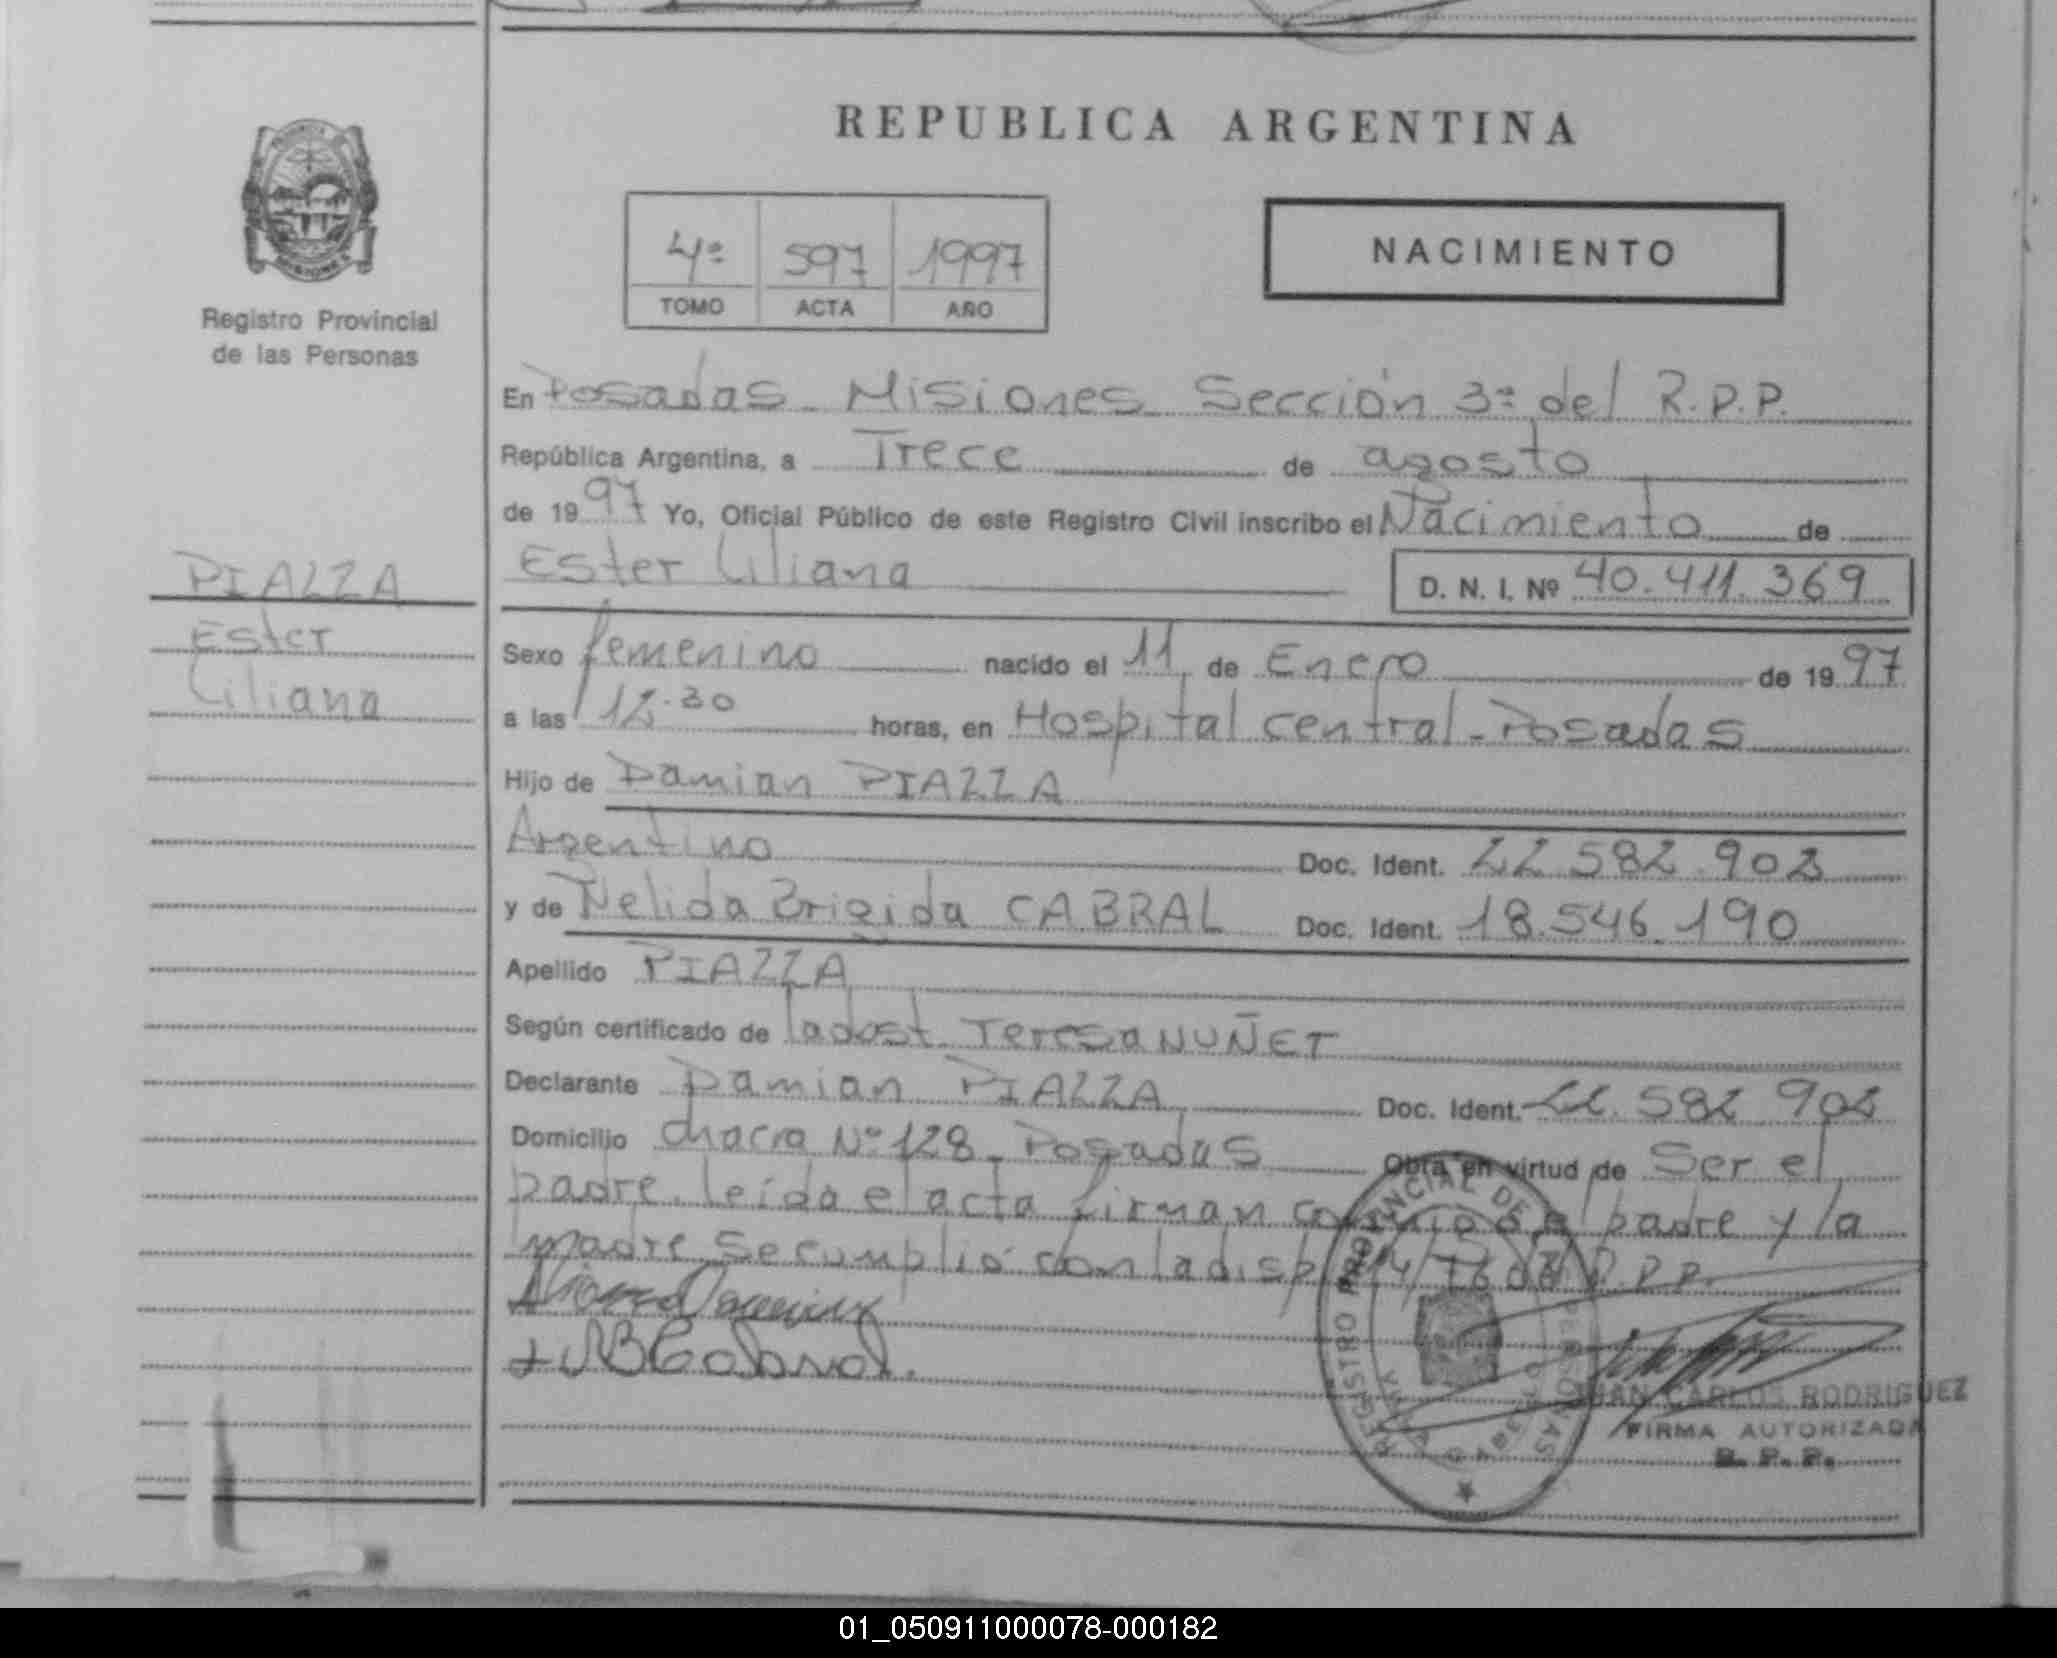 REPUBLICA ARGENTINA
4º 597 1997
TOMO ACTA AÑO
NACIMIENTO
Registro Provincial
de las Personas
PIAZZA
Ester
Liliana
En Posadas - Misiones - Sección 3ª del R.P.P.
República Argentina, a Trece de agosto
de 1997 Yo, Oficial Público de este Registro Civil inscribo el Nacimiento de
Ester Liliana D. N. I. Nº 40.411.369
Sexo femenino nacido el 11 de Enero de 1997
a las 12.30 horas, en Hospital central - Posadas
Hijo de Damian PIAZZA
Argentino Doc. Ident. 22.582.902
y de Nelida Brigida CABRAL Doc. Ident. 18.546.190
Apellido PIAZZA
Según certificado de la obst. Teresa NUÑET
Declarante Damian PIAZZA Doc. Ident. 22.582.902
Domicilio chacra Nº 128 - Posadas Obra en virtud de Ser el
padre. leida el acta firman conmigo el padre y la
madre. Se cumplió con la disp. R.P.P.
JUAN CARLOS RODRIGUEZ
FIRMA AUTORIZADA
R. P. P.
REGISTRO PROVINCIAL DE PERSONAS
01_050911000078-000182